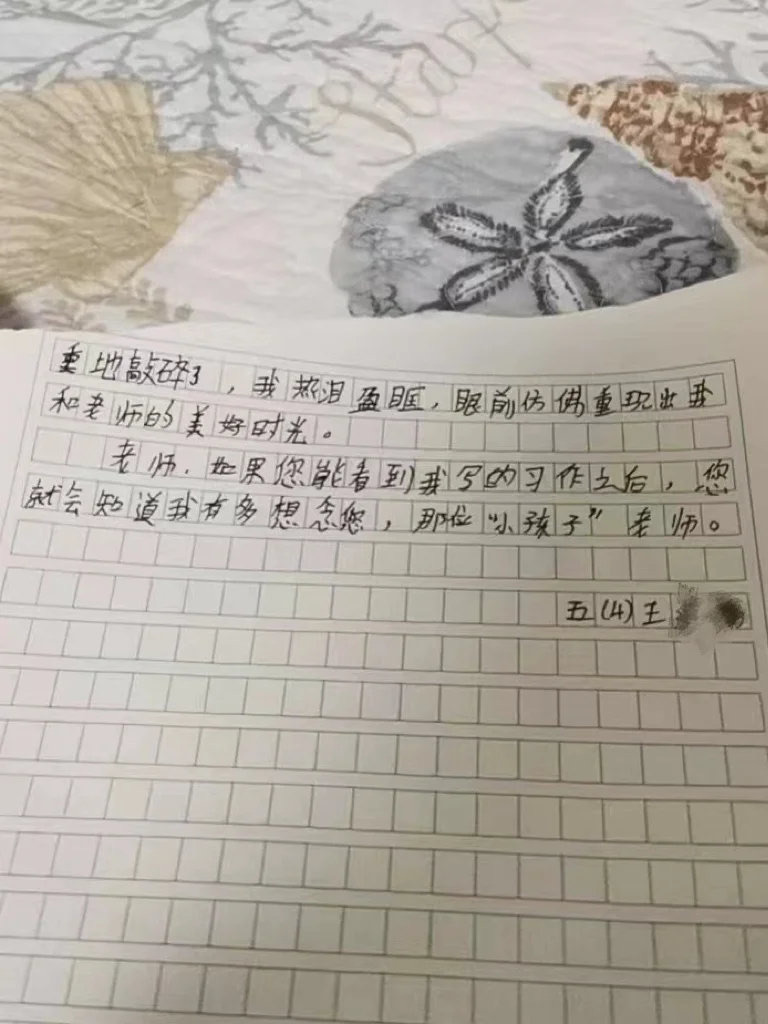 重地敲碎了，我热泪盈眶，眼前仿佛重现出我
和老师的美好时光。
老师，如果您能看到我写的习作之后，您
就会知道我有多想念您，那位“小孩子”老师。
五(4)王